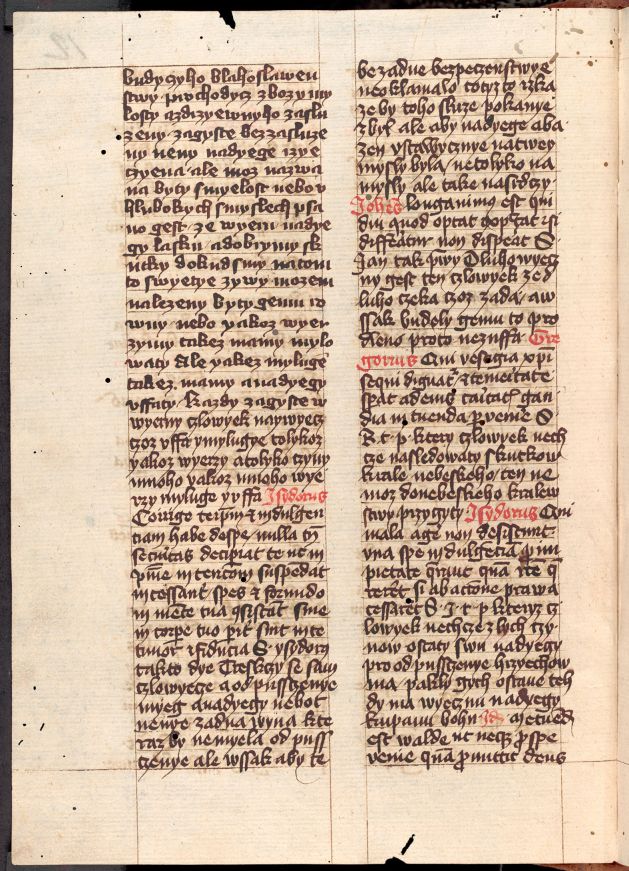 budyczyho blahoslawen
stwy prochodycz z bozy my
losty a zdizyewnyho zaslu
zeny zagyste bez zasluze
ny neny nadyege izye
czyena ale moz nazwa
na byty smyelost nebo v
hlubokych smyslech psa
no gest ze wyeni nadye
gy lasku a dobrymy sk
utky dokud smy na tom
to swyetye zywy mozem
nalezeny byty gemu ro
wny nebo yakoz wyer
zymy takez mamy mylo
waty Ale yakez myluge
takez mamy a nadyegy
vffaty Kazdy zagyste w
wyerny czlowyek naywyecz
czoz vffa y mylugye tolykoz
yakoz wyerzy a tolyko czyny
mnoho yakoz mnoho wye
rzy myluge y vffa Isydorus
Corrige terrim & indulgen
tiam habe despe nulla tn
securitas decipiat te ut in
 intencom suspendat
incessant spes & formido
in mente tua consistat sint
in corpe tuo prit sint in te
timor & fiducia S ysydorus
takto dye Tresktzy se sam
czlowyecze a od pusstzenye
myeg a nadyegy nebot
nenye zadna wyna kte
raz by nemyela od puss
tzenye ale wssak aby te
be zadne bezpeczenstwye
neoklamalo totyz to rzka
ze by toho skrze pokanye
zbyl ale aby nadyege a ba
zen vstawycznye na twey
mysly byla netolyko na
mysly ale take na srdczy
Johes longanimus est qui
diu quod optat expectat et si
differatur non desperat S
Jan tak prwy Dluhowyecz
ny gest ten czlowyek ze d
luho czeka czoz zada a w
ssak budely gemu to pro
dleno proto nezuffa Gre
gorius Qui vestigia xpi
sequi dignatur & temeritate
spat ademus gan
dia in tuenda pervenie S
R t p ktery czlowyek nech
cze nasledowaty skutkow
krale nebeskeho ten ne
moz do nebeskeho kralew
stwy przygyty Isydorus Qui
mala agere non desistunt
vna spe indulgeciam
pietate querunt quam recte
reret si ab actione prawa
cessaret S J t p kteryz cz
lowyek nechcze z lych czy
now ostaty swu nadyegy
pro od pusstzenye hrzyechow
ma pakly gych ostane teh
dy ma wyecznu nadyegy
k u panu bohu Id Metuend
est walde ut neque per spe
venie quam promittit deus